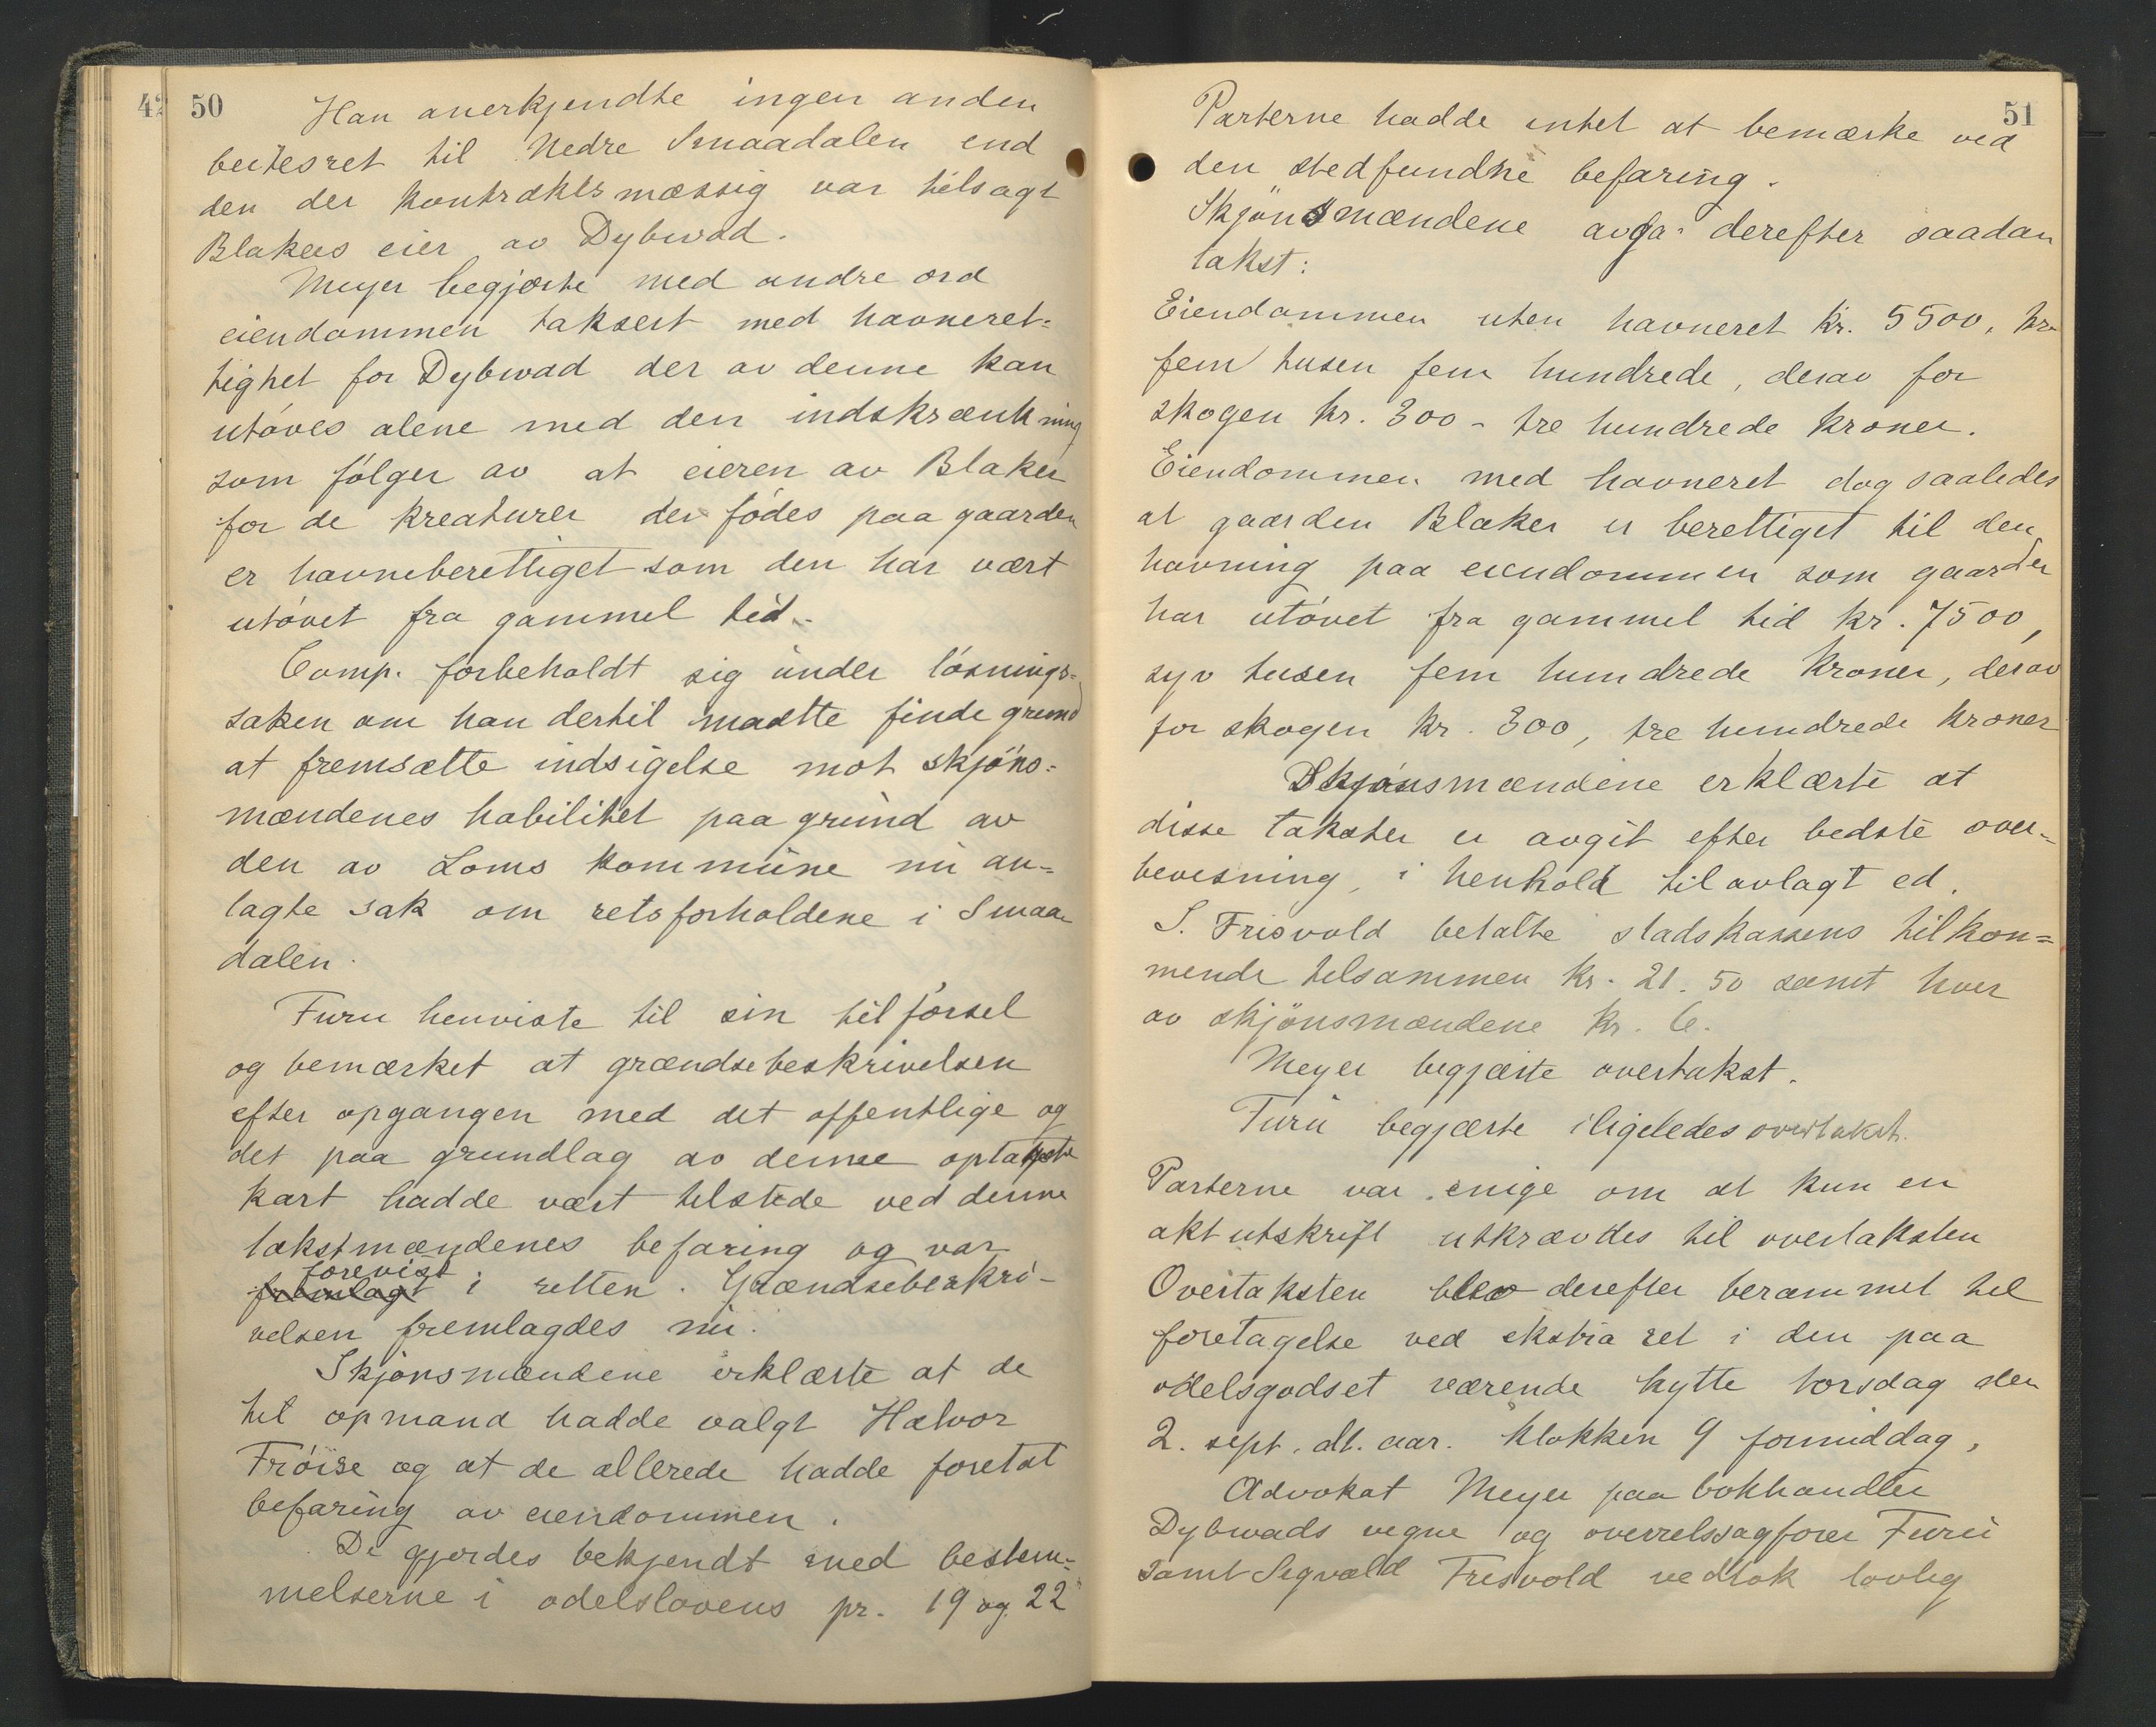 42
50
Han anerkjendte ingen anden
beitesret til Nedre Smaadalen end
den der kontraktsmæssig var tilsagt
Blakers eier av Dybwad.
Meyer begjærte med andre ord
eiendommen taksert med havneret-
tighet for Dybwad der av denne kan
utöves alene med den indskrænkning
som fölger av at eieren av Blaker
for de kreaturer der födes paa gaarden
er havneberettiget som den har vært
utövet fra gammel tid.
Comp. forbeholdt sig under lösnings-
saken om han dertil maatte finde grund
at fremsætte indsigelse mot skjöns=
mændenes habilitet paa grund av
den av Loms kommune nu an=
lagte sak om retsforholdene i Smaa-
dalen.
Furu henviste til sin tilförsel
og bemærket at grændsebeskrivelsen
efter opgangen med det offentlige og
det paa grundlag av denne optagne
kart hadde vært tilstede ved denne
takstmændenes befaring og var
forevist
fremlagt i retten. Grændsebeskri-
velsen fremlagdes nu.
Skjönsmændene erklærte at de
til opmand hadde valgt Halvor
Fröise og at de allerede hadde foretat
befaring av eiendommen.
De gjordes bekjendt med bestem-
melserne i odelslovens pr. 19 og 22
51
Parterne hadde intet at bemærke ved
den stedfundne befaring.
Skjönsmændene avga derefter saadan
takst:
Eiendommen uten havneret kr. 5500, kr
fem tusen fem hundrede, derav for
skogen kr. 300 - tre hundrede kroner.
Eiendommen med havneret dog saaledes
at gaarden Blaker er berettiget til den
havning paa eiendommen som gaarden
har utövet fra gammel tid kr. 7500,
syv tusen fem hundrede kroner, derav
for skogen kr. 300, tre hundrede kroner
Skjönsmændene erklærte at
disse takster er avgit efter bedste over-
bevisning, i henhold til avlagt ed.
S. Frisvold betalte statskassens tilkom=
mende tilsammen kr. 21.50 samt hver
av skjönsmændene kr. 6.
Meyer begjærte overtakst.
Furu begjærte iligeledes overtakst.
Parterne var enige om at kun en
aktutskrift utkrævdes til overtaksten
Overtaksten blev derefter berammet til
foretagelse ved ekstra ret i den paa
odelsgodset værende hytte torsdag den
2. sept. dt. aar. klokken 9 formiddag,
Advokat Meyer paa bokhandler
Dybwads vegne og overretssagförer Furu
samt Segvald Frisvold vedtok lovlig